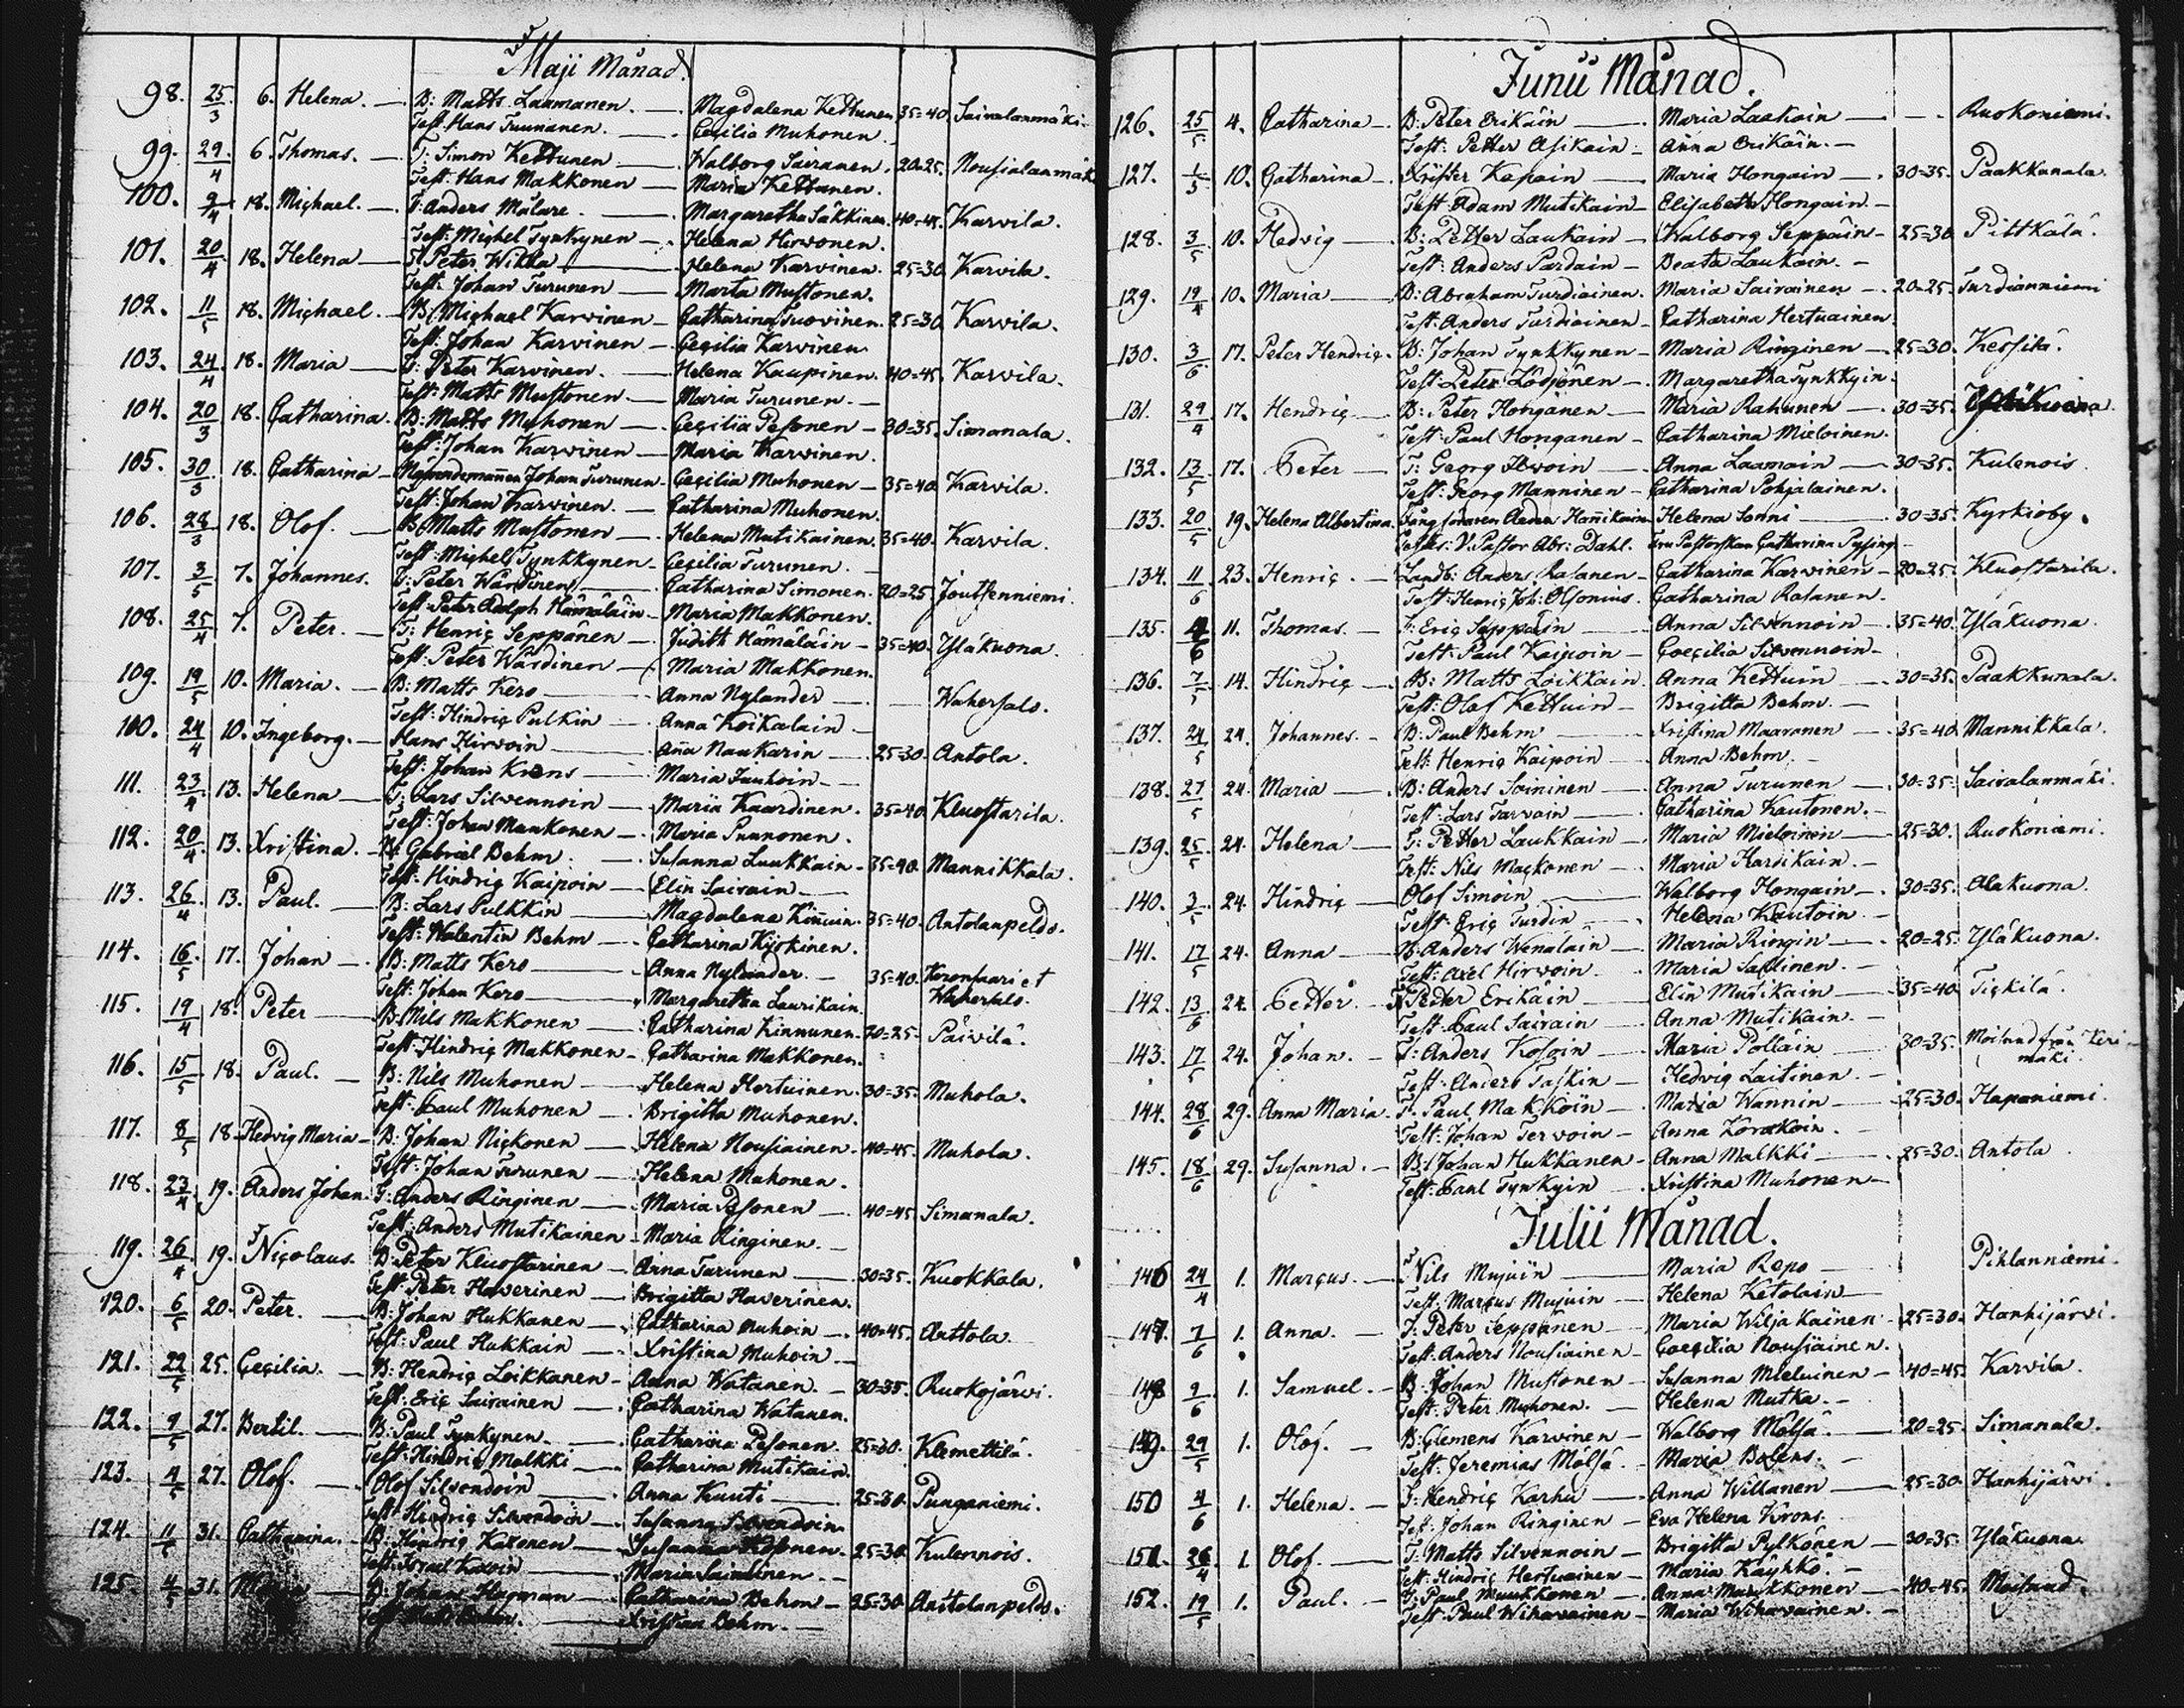 Maji Månad.
98. 25/3 6. Helena. — B: Matts Laamanen. — Magdalena Kettunen 35=40. Sairalanmäki.
Test. Hans Tuunanen. — Cecilia Muhonen.
99. 29/4 6. Thomas. — T: Simon Kettunen — Walborg Sairanen. 20=25. Nousialanmäki
Test: Hans Makkonen — Maria Kettunen.
100. 9/4 18. Michael. — T: Anders Målare. — Margaretha Säkkinen. 40=45. Karvila.
Test: Michel Tynkkynen — Helena Hirvonen.
101. 20/4 18. Helena — T: Peter Wikka — Helena Karvinen. 25=30. Karvila.
Test: Johan Turunen — Marta Mustonen.
102. 11/5 18. Michael. — B: Michael Karvinen — Catharina Tuovinen. 25=30. Karvila.
Test: Johan Karvinen — Cecilia Karvinen
103. 24/4 18. Maria — T: Peter Karvinen. — Helena Kaupinen. 40=45. Karvila.
Test: Matts Mustonen — Maria Turunen. —
104. 20/3 18. Catharina. B: Matts Muhonen — Cecilia Pesonen — 30=35. Simanala.
Test: Johan Karvinen — Maria Karvinen.
105. 30/3 18. Catharina — Johan Turunen — Cecilia Muhonen — 35=40 Karvila.
Test: Johan Karvinen. — Catharina Muhonen.
106. 28/3 18. Olof. — B: Matts Mustonen — Helena Mutikainen. 35=40. Karvila.
Test: Michel Tynkkynen — Cecilia Turunen. —
107. 3/5 7. Johannes. T: Peter Wärdinen — Catharina Simonen. 20=25 Joutsenniemi.
Test: Peter Adolph Hämäläin — Maria Makkonen.
108. 25/4 7. Peter. — T: Henric Seppänen — Judith Hämäläin — 35=40. Yläkuona.
Test: Peter Wärdinen — Maria Makkonen.
109. 19/5 10. Maria. — B: Matts Kero — Anna Nylander — Wahersalo.
Test: Hindric Pulkin — Anna Koikalain —
100. 24/4 10. Ingeborg. — Hans Hirvoin — Aña Naukarin — 25=30. Antola.
Test: Johan Krons — Maria Juuhoin —
111. 23/4 13. Helena — T: Lars Silvennoin — Maria Kaardinen. 35=40 Kluostarila.
Test: Johan Maukonen — Maria Punnonen.
112. 20/4 13. Xristina. — B: Gabriel Behm. — Susanna Luukkain — 35=40. Mannikkala.
Test: Hindric Kaipoin — Elin Sairain —
113. 26/4 13. Paul. — B: Lars Pulkkin — Magdalena Kiñuin. 35=40. Antolanpeldo.
Test: Walentin Behm — Catharina Kijokinen.
114. 16/5 17. Johan — B: Matts Kero — Anna Nylander. — 35=40. Koronsaari et
Test: Johan Kero — Margaretha Laurikain Wahersalo.
115. 19/4 18. Peter — B: Nils Makkonen — Catharina Kinnunen. 20=25. Päivilä.
Test: Hindric Makkonen — Catharina Makkonen.
116. 15/5 18. Paul. — B: Nils Muhonen — Helena Hertuinen. 30=35. Muhola.
Test: Paul Muhonen — Brigitta Muhonen.
117. 8/5 18. Hedvig Maria — B: Johan Nickonen — Helena Nousiainen. 40=45. Muhola.
Test: Johan Turunen — Helena Muhonen.
118. 23/4 19. Anders Johan. T: Anders Ringinen — Maria Pesonen — 40=45 Simanala.
Test: Anders Mutikainen — Maria Ringinen. —
119. 26/4 19. Nicolaus. B: Peter Kluostarinen — Anna Turunen — 30=35. Kuokkala.
Test: Peter Haverinen — Brigitta Haverinen.
120. 6/5 20. Peter. — B: Johan Hukkanen — Catharina Muhoin — 40=45. Anttola.
Test: Paul Hukkain — Xristina Muhoin —
121. 22/5 25. Cecilia. — B: Hendric Loikkanen — Anna Watanen. — 30=35. Ruokojärvi.
Test: Eric Sairainen — Catharina Watanen.
122. 9/5 27. Bertil. — B: Paul Tynkynen. — Catharina Pesonen. 25=30. Klemettilä.
Test: Hindric Malkki — Catharina Mutikain.
123. 4/5 27. Olof. — Olof Silvendoin — Anna Kuuti — 25=30. Punganiemi.
Test: Hindric Silvendoin — Susanna Silvendoin
124. 11/5 31. Catharina. — B: Hindric Kakonen — Susanna 25=30 Kulennois.
Test: — Maria
125. 4/5 31. — B: Johan Hogman — Catharina Behm — 25=30. Anttolanpeldo.
Test: — Xristina Behm. —
Junii Månad.
126. 25/5 4. Catharina — B: Peter Erikäin — Maria Laakoin — Ruokoniemi.
Test: Petter Asikain — Anna Erikäin. —
127. 1/5 10. Catharina — Xrister Kapain — Maria Hongain — 30=35. Paakkunala.
Test: Adam Mutikain — Elisabeth Hongain. —
128. 3/5 10. Hedvig — B: Petter Laukain — Walborg Seppäin — 25=30 Pittkälä.
Test: Anders Pardain — Beata Laukain. —
129. 19/4 10. Maria — B: Abraham Turdiainen. Maria Sairainen — 20=25. Turdianniemi
Test: Anders Turdiainen — Catharina Hertuainen.
130. 3/6 17. Peter Hendric. B: Johan Tynkkynen — Maria Ringinen — 25=30. Kessilä.
Test: Peter Lödjönen — Margaretha Tynkkyin.
131. 29/4 17. Hendric — B: Peter Honganen — Maria Rahunen — 30=35.
Test: Paul Honganen — Catharina Mieloinen.
132. 13/5 17. Peter — T: Georg Ilvoin — Anna Laamain — 30=35. Kulenois.
Test: Georg Manninen — Catharina Pohjalainen.
133. 20/5 19. Helena Albertina. Hañikain Helena Sonni — 30=35. Kyrkioby.
Testes: V. Pastor Abr: Dahl. Fru Pastorskan Catharina
134. 11/6 23. Henric. — Landb: Anders Rasanen — Catharina Karvinen — 20=25. Kluostarila.
Test: Henric Joh: Olsonius. Catharina Rasanen.
135. 4/6 11. Thomas. — T: Eric Seppäin — Anna Silvennoin — 35=40. Yläkuona.
Test: Paul Kaipoin — Coecilia Silvennoin —
136. 7/5 14. Hindric — B: Matts Loikkain. Anna Kettuin — 30=35. Paakkunala.
Test: Olof Kettuin — Brigitta Behm. —
137. 24/5 24. Johannes. — B: Paul Behm — Xristina Maaranen — 35=40 Mannikkala.
Test: Henric Kaipoin — Anna Behm. —
138. 27/5 24. Maria — B: Anders Soininen — Anna Turunen — 30=35. Sairalanmäki.
Test: Lars Tarvain — Catharina Kautonen. —
139. 25/5 24. Helena — T: Petter Laukkain — Maria Mieloinen — 25=30. Ruokoniemi.
Test: Nils Mackonen — Maria Harsikain. —
140. 3/5 24. Hindric — Olof Simoin — Walborg Hongain — 30=35. Alakuona.
Test: Eric Turdin — Helena Kautoin. —
141. 17/5 24. Anna — B: Anders Wenäläin — Maria Ringin — 20=25. Yläkuona.
Test: Axel Hirvoin — Maria Sallinen. —
142. 13/6 24. Petter. — Peter Erikäin — Elin Mutikain — 35=40 Tickilä.
Test: Paul Sairain — Anna Mutikain. —
143. 17/5 24. Johan. — T: Anders Kosoin — Maria Pölläin — 30=35. Moilund från Keri-
mäki.
Test: Anders Taskin — Hedvig Laitinen. —
144. 28/6 29. Anna Maria. T: Paul Makkoin — Maria Wannin — 25=30. Hapaniemi.
Test: Johan Tervoin — Anna
145. 18/6 29. Susanna. — B: Johan Hukkanen — Anna Malkki — 25=30. Antola
Test: Paul Tynkyin — Xristina Muhonen —
Julii Månad.
146 24/4 1. Marcus. — Nils Mujuin — Maria Repo — Pihlanniemi.
Test: Marcus Mujuin — Helena Ketolain —
147. 7/6 1. Anna. — T: Peter Seppänen — Maria Wiljakainen. 25=30. Hanhijärvi.
Test: Anders Nousiainen — Coecilia Nousiainen.
148 9/6 1. Samuel. — B: Johan Mustonen — Susanna Mieluinen — 40=45. Karvila.
Test: Peter Muhonen. — Helena Mutka. —
149. 29/5 1. Olof. — B: Clemens Karvinen — Walborg Mölsä. — 20=25. Simanala.
Test: Jeremias Mölsä. — Maria
150 4/6 1. Helena. — T: Hendric Karhu — Anna Willanen — 25=30. Hanhijärvi.
Test: Johan Ringinen — Eva Helena Krons.
151. 26/4 1. Olof. — T: Matts Silvennoin — Brigitta Pylkönen — 30=35. Yläkuona.
Test: Hindric Hertuainen — Maria Käyhkö. —
152. 19/5 1. Paul. — T: Paul Muukkonen — Anna Muukkonen — 40=45. Moilund.
Test: Paul Wihavainen — Maria Wihavainen. —